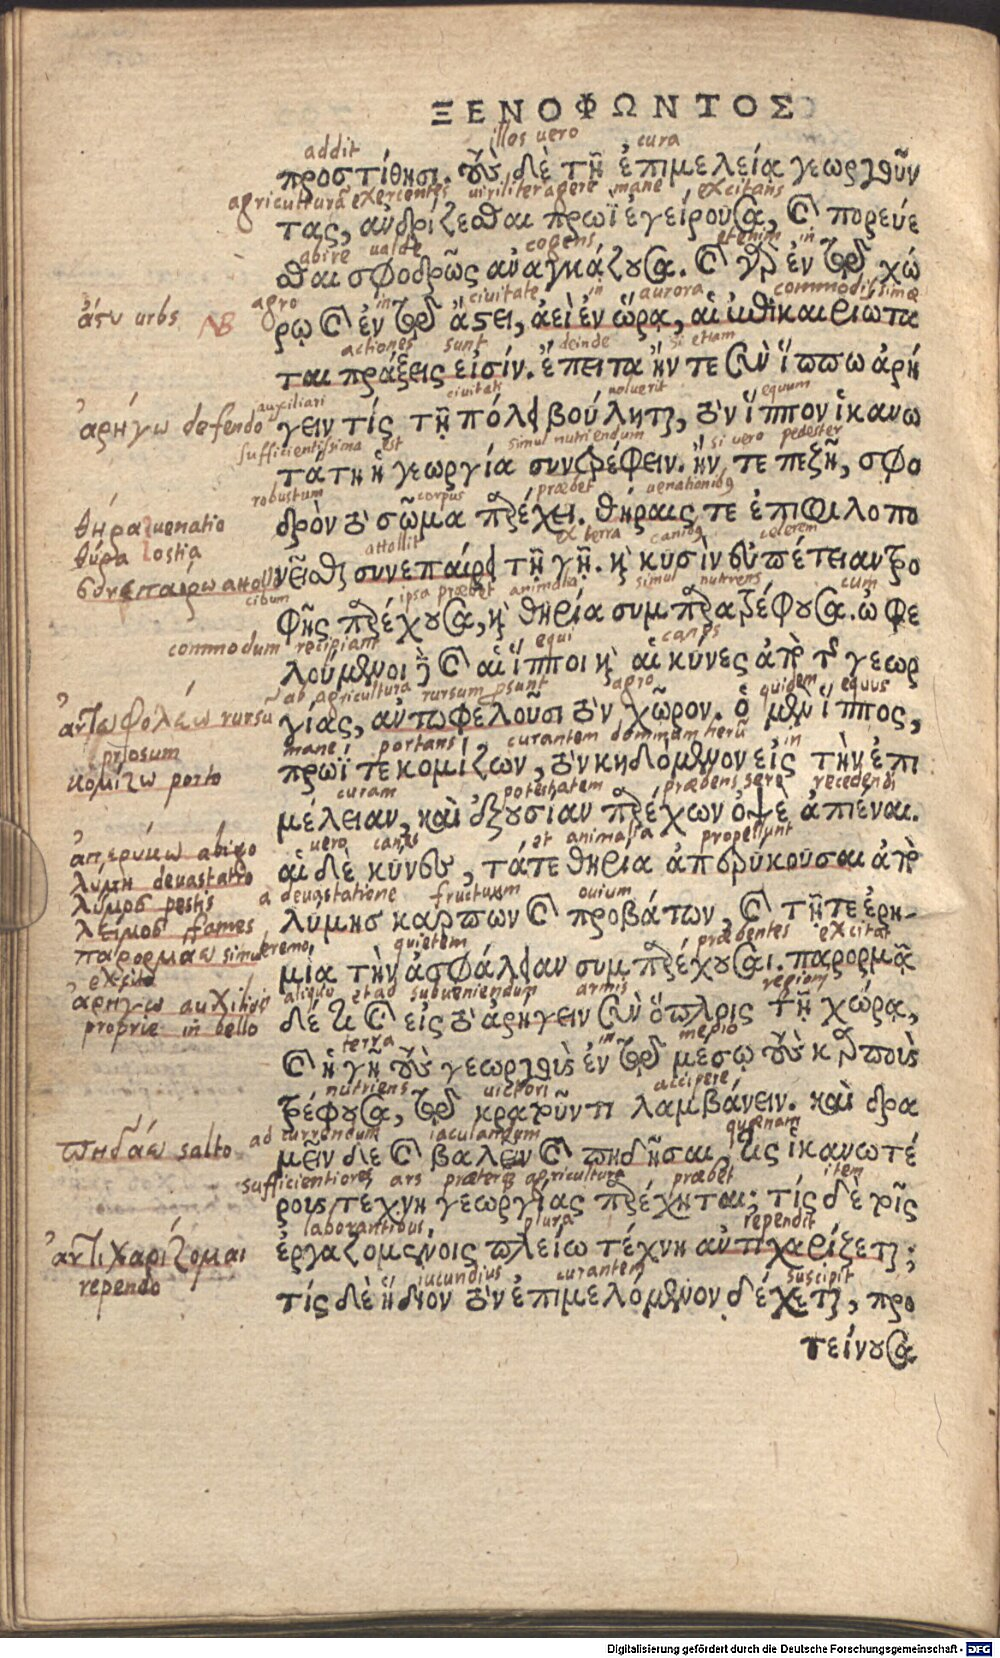 ΞΕΝΟΦΩΝΤΟΣ
addit illos uero cura
προστίθησι. τοὺς δὲ τῇ ἐπιμελείᾳ γεωργοῦν
agriculturā exercentes uiriliter agere mane excitans
τας, ἀνδρίζεσθαι πρωῒ ἐγείρουσα, καὶ πορεύε
abire ualde cogens etenim in
σθαι σφοδρῶς ἀναγκάζουσα. καὶ γὰρ ἐν τῷ χώ
ἄςυ urbs NB agro in ciuitate in aurora commodissimæ
ρῳ καὶ ἐν τῷ ἄςει, ἀεὶ ἐν ὥρᾳ, αἱ ἐπικαιριωτα
actiones sunt deinde si etiam
ται πράξεις εἰσίν. ἔπειτα ἤν τε σὺν ἵππῳ ἀρή
ἀρήγω defendo auxiliari ciuitati uoluerit equum
γειν τίς τῇ πόλει βούληται, τὸν ἵππον ἱκανω
sufficientissima est simul nutriendum si uero pedester
τάτη ἡ γεωργία συντρέφειν. ἤν τε πεζῆ, σφο
robustum corpus præbet uenationibꝫ
δρὸν τὸ σῶμα παρέχει. θήραις τε ἐπιφιλοπο
θήρα uenatio
θύρα ostia
attollit ex terra canibꝫ celerem
νεῖσθαι συνεπαίρει τῇ γῇ. καὶ κυσὶν εὐπέτειαν τρο
συνεπαίρω attollo
cibum ipsa præbet animalia simul nutriens cum
φῆς παρέχουσα, καὶ θηρία συμπαρατρέφουσα. ὠφε
commodum recipiant equi canes
λούμενοι δὲ καὶ αἱ ἵπποι καὶ αἱ κύνες ἀπὸ τῆς γεωρ
ab agricultura rursum psunt agro quidem equus
γίας, ἀντωφελοῦσι τὸν χῶρον. ὁ μὲν ἵππος,
ἀντωφολέω rursū
prosum
mane portans curantem dominum herū in
πρωΐ τε κομίζων, τὸν κηδόμενον εἰς τὴν ἐπι
κομίζω porto
curam potestatem præbens sero recedendi
μέλειαν, καὶ ἐξουσίαν παρέχων ὀψὲ ἀπιέναι.
ἀπερύκω abigo uero canes et animalia propellunt
αἱ δὲ κύνες, τά τε θηρία ἀπερύκουσαι ἀπὸ
λύμη deuastatio
λύμος pestis
a deuastatione fructuum ouium
λύμης καρπῶν καὶ προβάτων, καὶ τῇ τε ἐρη-
λείμος fames
παρορμάω simul
excito
eremo quietem præbentes excitat
μίᾳ τὴν ἀσφάλειαν συμπαρέχουσαι. παρορμᾷ
ἀρήγω auxilior
proprie in bello
aliquo et ad subueniendum armis regioni
δέ τι καὶ εἰς τὸ ἀρήγειν σὺν ὅπλοις τῇ χώρᾳ,
terra in medio
καὶ ἡ γῆ τοὺς γεωργοὺς ἐν τῷ μέσῳ τοὺς καρποὺς
nutriens uictori accipere
τρέφουσα, τῷ κρατοῦντι λαμβάνειν. καὶ δρα
πηδάω salto ad currendum iaculandum quænam
μεῖν δὲ καὶ βαλεῖν καὶ πηδῆσαι, τίς ἱκανωτέ
sufficientiores ars præterꝗ agricultura præbet item
ρους τέχνη γεωργίας παρέχηται; τίς δὲ τοῖς
laborantibus plura rependit
ἐργαζομένοις πλείω τέχνη ἀντιχαρίζεται;
ἀντιχαρίζομαι
rependo
iucundius curantem suscipit
τίς δὲ ἥδιον τὸν ἐπιμελόμενον δέχεται, προ
τείνουσα
Digitalisierung gefördert durch die Deutsche Forschungsgemeinschaft - DFG